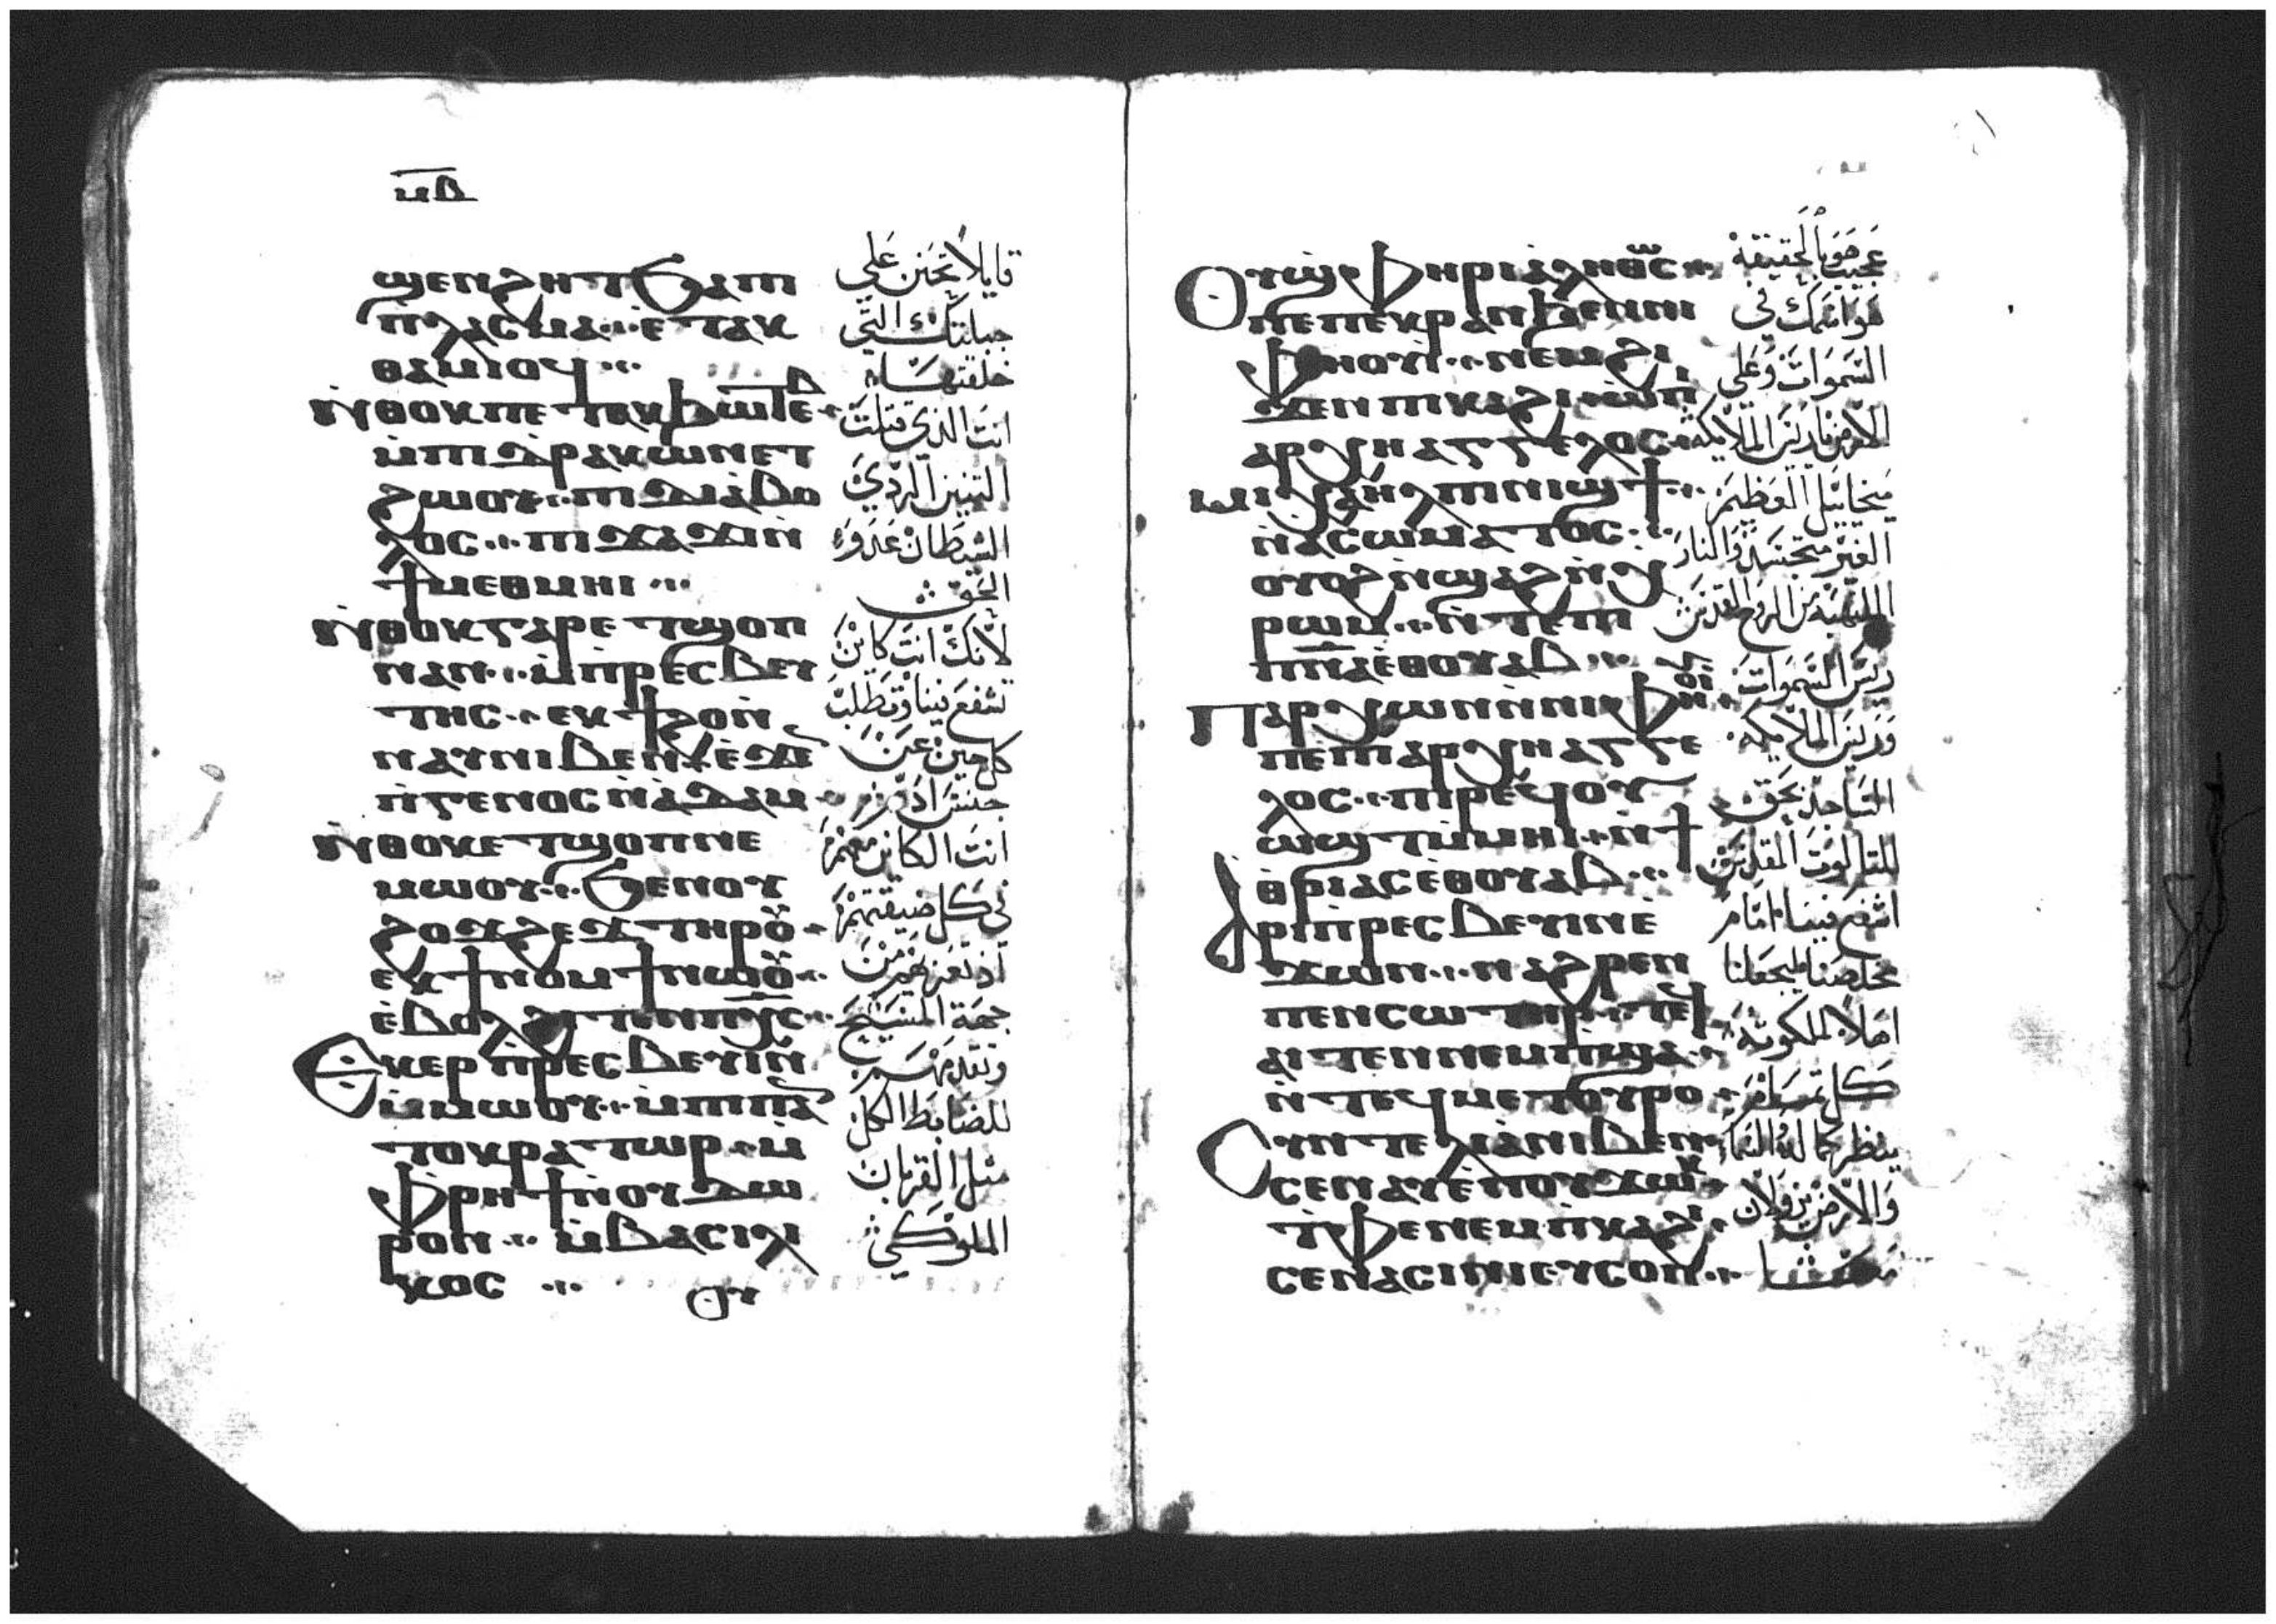 ⲙⲃ
ϣⲉⲛϩⲏⲧ ϧⲁⲡⲓ
ⲡⲗⲁⲥⲙⲁ ⲉⲧⲁⲕ
ⲑⲁⲙⲓⲟϥ
ⲛ̀ⲑⲟⲕ ⲡⲉ ⲧⲁⲕϧⲱⲧⲉⲃ
ⲙ̀ⲡⲓⲇⲣⲁⲕⲱⲛ ⲉⲧ
ϩⲱⲟⲩ ⲡⲓⲇⲓⲁⲃⲟ
ⲗⲟⲥ ⲡⲓϫⲁϫⲓ ⲛ̀
ϯⲙⲉⲑⲙⲏⲓ
ⲛ̀ⲑⲟⲕ ⲅⲁⲣ ⲉⲧϣⲟⲡ
ⲛⲁⲛ ⲙ̀ⲡⲣⲉⲥⲃⲉⲩ
ⲧⲏⲥ ⲉⲕϯϩⲟ ⲛ̀
ⲛⲁⲩ ⲛⲓⲃⲉⲛ ⲉ̀ϫⲉⲛ
ⲡ̀ⲅⲉⲛⲟⲥ ⲛ̀ⲁⲇⲁⲙ
ⲛ̀ⲑⲟⲕ ⲉⲧϣⲟⲡ ⲛⲉ
ⲙⲱⲟⲩ ϧⲉⲛ ⲛⲟⲩ
ϩⲟϫϩⲉϫ ⲧⲏⲣⲟⲩ
ⲉⲕϯⲛⲟⲙϯ ⲛⲱⲟⲩ
ⲉ̀ⲃⲟⲗϩⲓⲧⲉⲛ ⲡⲭ̅ⲥ̅
ⲉⲕⲉⲣⲡ̀ⲣⲉⲥⲃⲉⲩⲓⲛ
ⲙ̀ⲙⲱⲟⲩ ⲙ̀ⲡⲓⲡⲁⲛ
ⲧⲟⲕⲣⲁⲧⲱⲣ ⲙ̀
ⲫ̀ⲣⲏϯ ⲛ̀ⲟⲩⲇⲱ
ⲣⲟⲛ ⲙ̀ⲃⲁⲥⲓⲗⲓ
ⲕⲟⲥ
ⲟⲩ
قايلاً تحنن علي
جبلتك التي
خلقتها
انت الذي قتلت
التنين الردي
الشيطان عدو
الحق
لانك انت كاين
تشفع فينا وتطلب
كل حين عن
جنس ادم
انت الكاين معهم
في كل ضيقتهم
اذ تعزيهم من
جهة المسيح
وتقدمهم
للضابط الكل
مثل القربان
الملوكي
ⲟⲩϣ̀ⲫⲏⲣⲓ ⲁⲗⲏⲑⲱⲥ
ⲡⲉ ⲡⲉⲕⲣⲁⲛ ϧⲉⲛ ⲛⲓ
ⲫⲏⲟⲩⲓ ⲛⲉⲙ ϩⲓ
ϫⲉⲛ ⲡⲓⲕⲁϩⲓ ⲱ̀ ⲡⲓ
ⲁⲣⲭⲏⲁⲅⲅⲉⲗⲟⲥ
ⲙⲓⲭⲁⲏⲗ ⲡⲓⲛⲓϣϯ
ⲛ̀ⲁⲥⲱⲙⲁⲧⲟⲥ
ⲟⲩⲟϩ ⲛ̀ϣⲁϩ ⲛ̀ⲭ
ⲣⲱⲙ ⲛ̀ⲧⲉ ⲡⲓ
ⲡⲛ̅ⲁ̅ ⲉⲑⲟⲩⲁⲃ
ⲡⲁⲣⲭⲱⲛ ⲛ̀ⲛⲓⲫⲏⲟⲩⲓ
ⲡⲉ ⲡⲓⲁⲣⲭⲏⲁⲅⲅⲉ
ⲗⲟⲥ ⲡⲓⲣⲉϥⲟⲩ
ⲱϣⲧ ⲙ̀ⲙⲏⲓ ⲛ̀ϯ
ⲑⲣⲓⲁⲥ ⲉⲑⲟⲩⲁⲃ
ⲁⲣⲓⲡⲣⲉⲥⲃⲉⲩⲓⲛ ⲉ̀
ϫⲱⲛ ⲛⲁϩⲣⲉⲛ
ⲡⲉⲛⲥⲱⲧⲏⲣ ⲛ̀ⲧⲉϥ
ⲁⲓⲧⲉⲛ ⲛ̀ⲉⲙⲡ̀ϣⲁ
ⲛ̀ⲧⲉϥⲙⲉⲧⲟⲩⲣⲟ
ⲥⲩⲛⲧⲉⲗⲓⲁ ⲛⲓⲃⲉⲛ
ⲥⲉⲛⲁⲩ ⲉ̀ⲡⲟⲩϫⲱⲕ
ⲧ̀ⲫⲉ ⲛⲉⲙ ⲡ̀ⲕⲁϩⲓ
ⲥⲉⲛⲁⲥⲓⲛⲓ ⲉⲩⲥⲟⲡ
عجيب هو بالحقيقة
هو اسمك في
السموات وعلي
الارض يا ريس الملايكة
ميخاييل العظيم
الغير متجسد والنار
الملتهبة من الروح القدس
ريس السموات
وريس الملايكة
الساجد بحق
للثالوث المقدس
اشفع فينا امام
مخلصنا ليجعلنا
اهلاً لملكوته
كل تمام
ينظر كماله السما
والارض يزولان